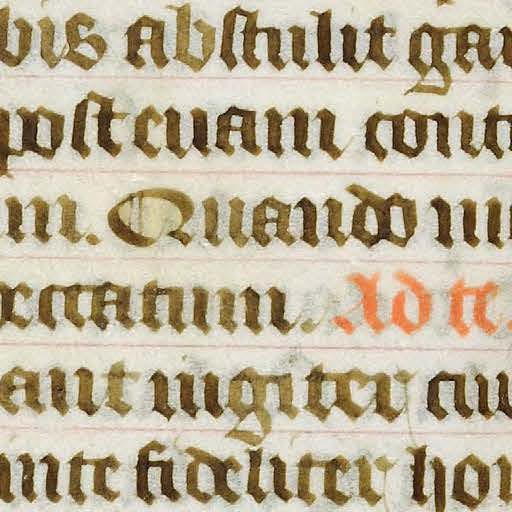 bis abstulit gau
post euam cont
m. Quando
eccatum. Ad te.
ant iugiter cu
ante fideliter hon